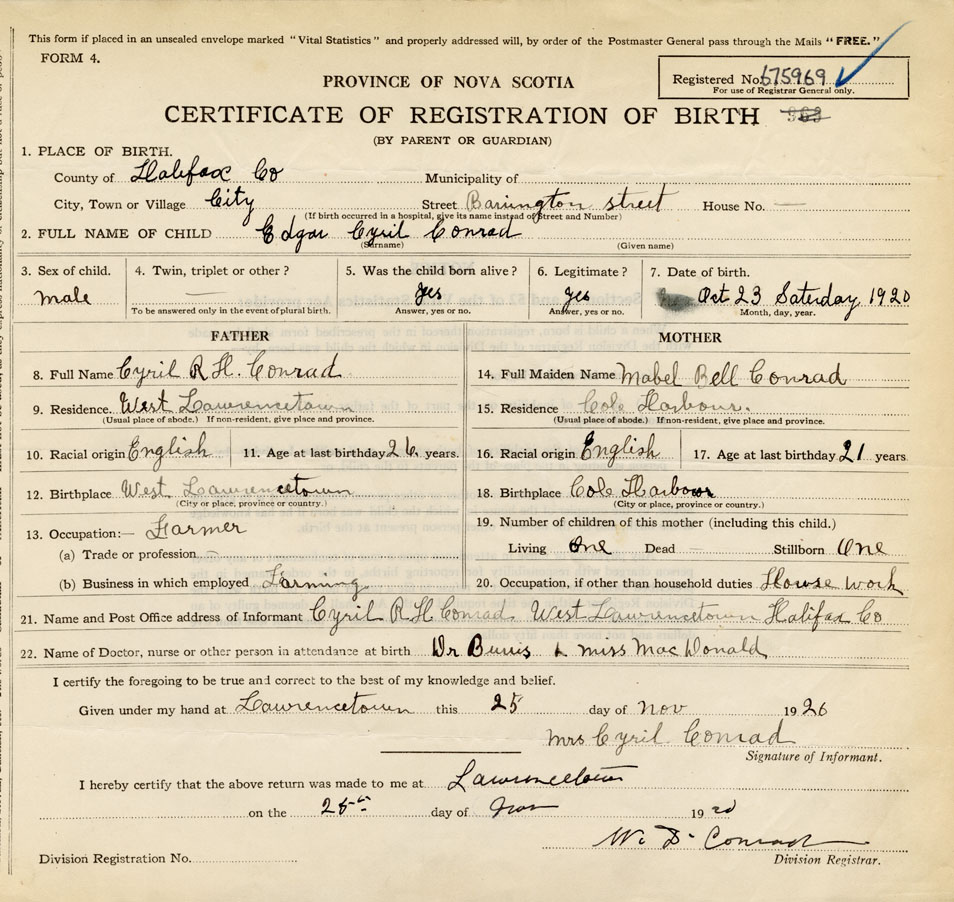 This form if placed in an unsealed envelope marked "Vital Statistics" and properly addressed will, by order of the Postmaster General pass through the Mails "FREE."
FORM 4.
Registered No. 675969
For use of Registrar General only.
PROVINCE OF NOVA SCOTIA
CERTIFICATE OF REGISTRATION OF BIRTH
(BY PARENT OR GUARDIAN)
1. PLACE OF BIRTH.
County of Halifax Co Municipality of
City, Town or Village City Street Barrington street House No. —
(If birth occurred in a hospital, give its name instead of Street and Number)
2. FULL NAME OF CHILD Edgar Cyril Conrad
(Surname) (Given name)
3. Sex of child. 4. Twin, triplet or other? 5. Was the child born alive? 6. Legitimate? 7. Date of birth.
male — yes yes Oct 23 Saterday 1920
To be answered only in the event of plural birth. Answer, yes or no. Answer, yes or no. Month, day, year.
FATHER MOTHER
8. Full Name Cyril R H. Conrad 14. Full Maiden Name Mabel Bell Conrad
9. Residence. West Lawrencetown 15. Residence Cole Harbour.
(Usual place of abode.) If non-resident, give place and province. (Usual place of abode.) If non-resident, give place and province.
10. Racial origin English 11. Age at last birthday 26 years. 16. Racial origin English 17. Age at last birthday 21 years
12. Birthplace West Lawrencetown 18. Birthplace Cole Harbour
(City or place, province or country.) (City or place, province or country.)
13. Occupation:— Farmer 19. Number of children of this mother (including this child.)
(a) Trade or profession — Living One Dead — Stillborn One
(b) Business in which employed Farming 20. Occupation, if other than household duties House work
21. Name and Post Office address of Informant Cyril R H Conrad West Lawrencetown Halifax Co
22. Name of Doctor, nurse or other person in attendance at birth Dr Burris & miss Mac Donald
I certify the foregoing to be true and correct to the best of my knowledge and belief.
Given under my hand at Lawrencetown this 25 day of Nov 1920
Mrs Cyril Conrad
Signature of Informant.
I hereby certify that the above return was made to me at Lawrencetown
on the 25th day of Nov 1920
W. D. Conrad
Division Registration No. Division Registrar.